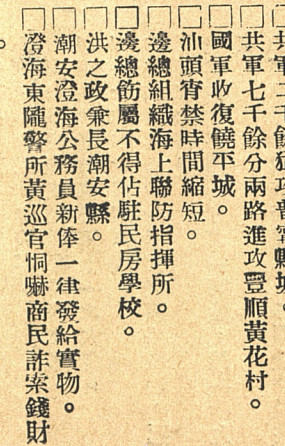 共軍二千餘猛攻普寧縣城。
□共軍七千餘分兩路進攻豐順黃花村。
□國軍收復饒平城。
□汕頭宵禁時間縮短。
□邊總組織海上聯防指揮所。
□邊總飭屬不得佔駐民房學校。
□洪之政兼長潮安縣。
□潮安澄海公務員新俸一律發給實物。
□澄海東隴警所黃巡官恫嚇商民詐索錢財
。